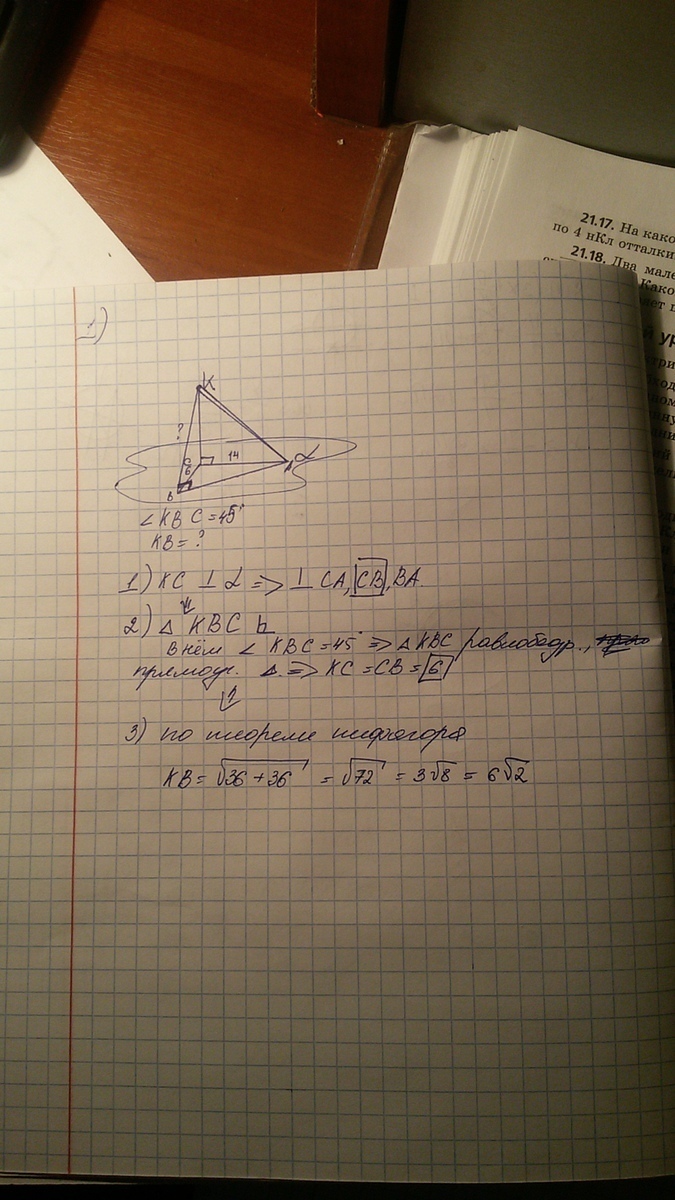 21.17. На како
по 4 нКл отталки
21.18. Два мале
Како
1)
K
?
C
6
14
α
B
∠KBC = 45°
KB = ?
1) KC ⊥ α => ⊥ CA, CB, BA.
2) △ KBC
в нём ∠ KBC = 45° => △ KBC равнобедр.,
прямоуг. △. => KC = CB = 6
3) по теореме пифагора
KB = √36 + 36 = √72 = 3√8 = 6√2